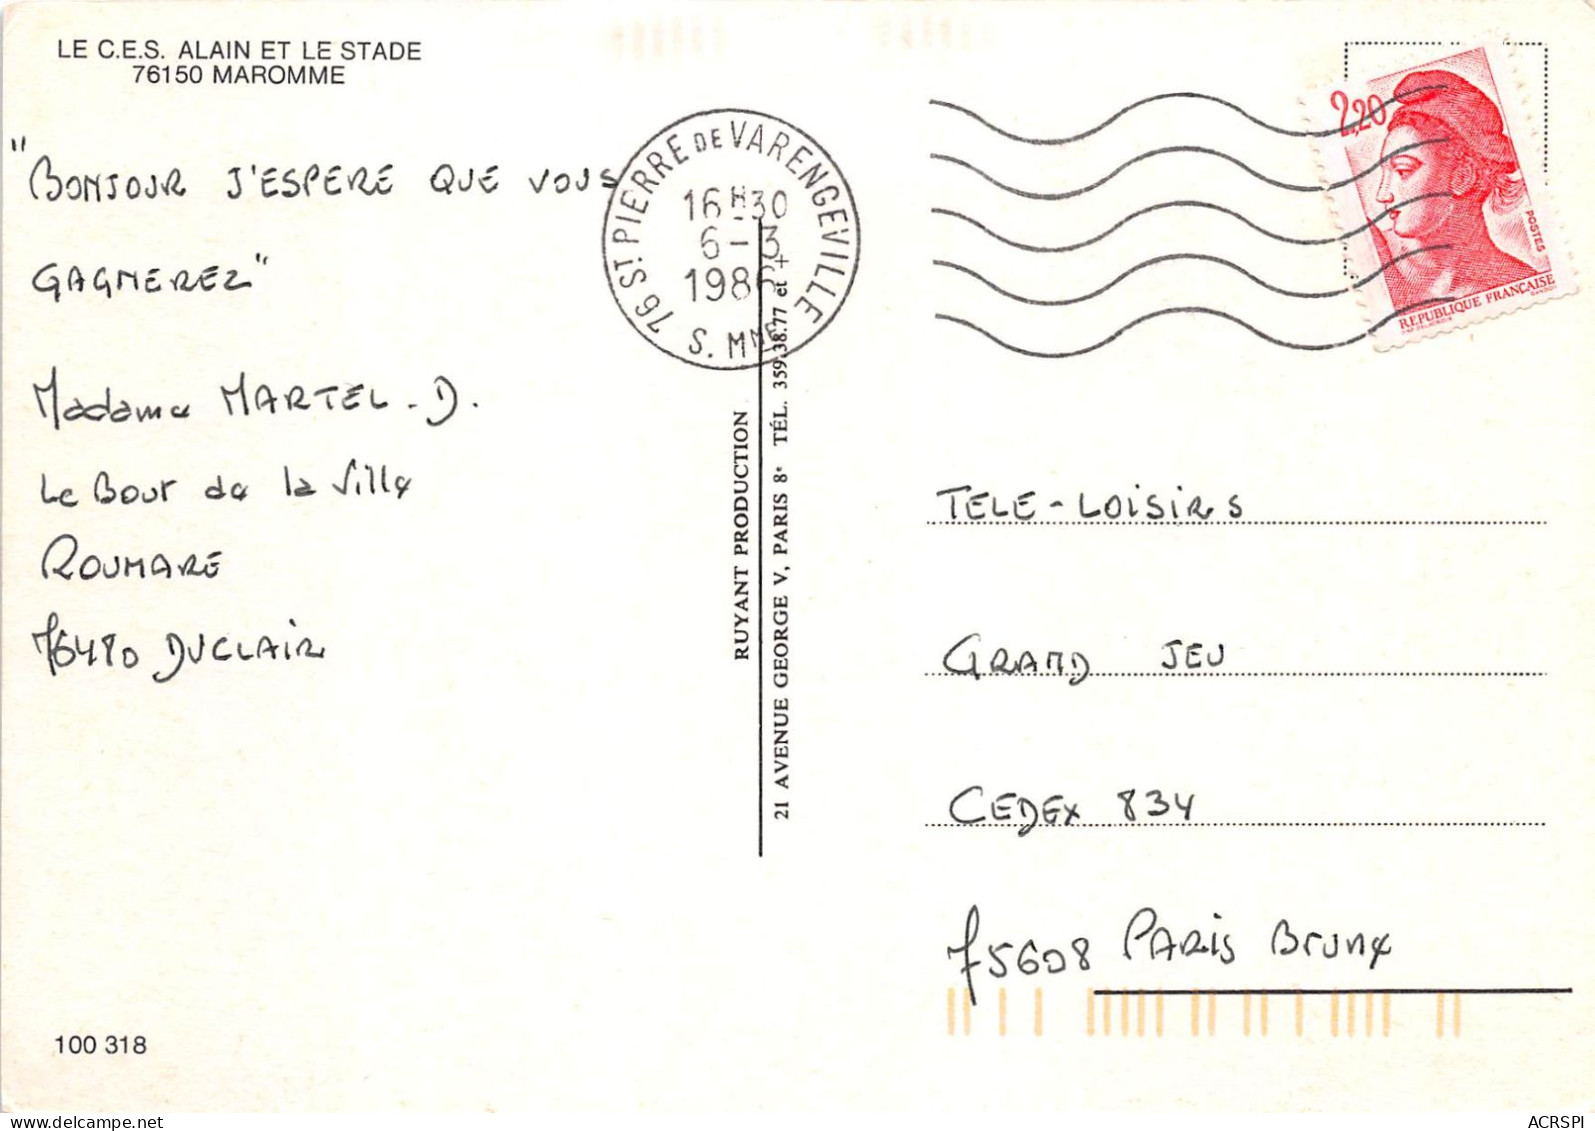 LE C.E.S. ALAIN ET LE STADE
76150 MAROMME
"BONJOUR J'ESPERE QUE VOUS
GAGNEREZ"
Madame MARTEL-D.
Le Bout de la Ville
ROUMARE
76480 DUCLAIR
100 318
76 ST PIERRE DE VARENGEVILLE
16H30
6-3
1986
S. MME
RUYANT PRODUCTION
21 AVENUE GEORGE V, PARIS 8e TÉL. 359.38.77 et +
2,20
POSTES
REPUBLIQUE FRANÇAISE
TELE-LOISIRS
GRAND JEU
CEDEX 834
75608 PARIS Brune
www.delcampe.net
ACRSPI